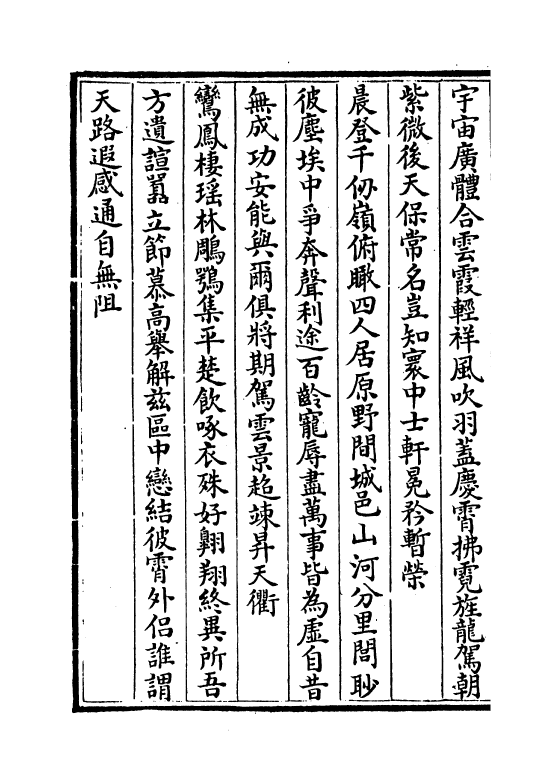 宇宙廣體合雲霞輕祥風吹羽蓋慶霄拂霓旌龍駕朝
紫微後天保常名豈知寰中士軒冕矜暫榮
晨登千仞嶺俯瞰四人居原野間城邑山河分里閭眇
彼塵埃中爭奔聲利途百齡寵辱盡萬事皆為虛自昔
無成功安能與爾俱將期駕雲景超竦昇天衢
鸞鳳棲瑶林鵰鶚集平楚飲啄衣殊好翺翔終異所吾
方遺諠囂立節慕高舉解兹區中戀結彼霄外侣誰謂
天路遐感通自無阻